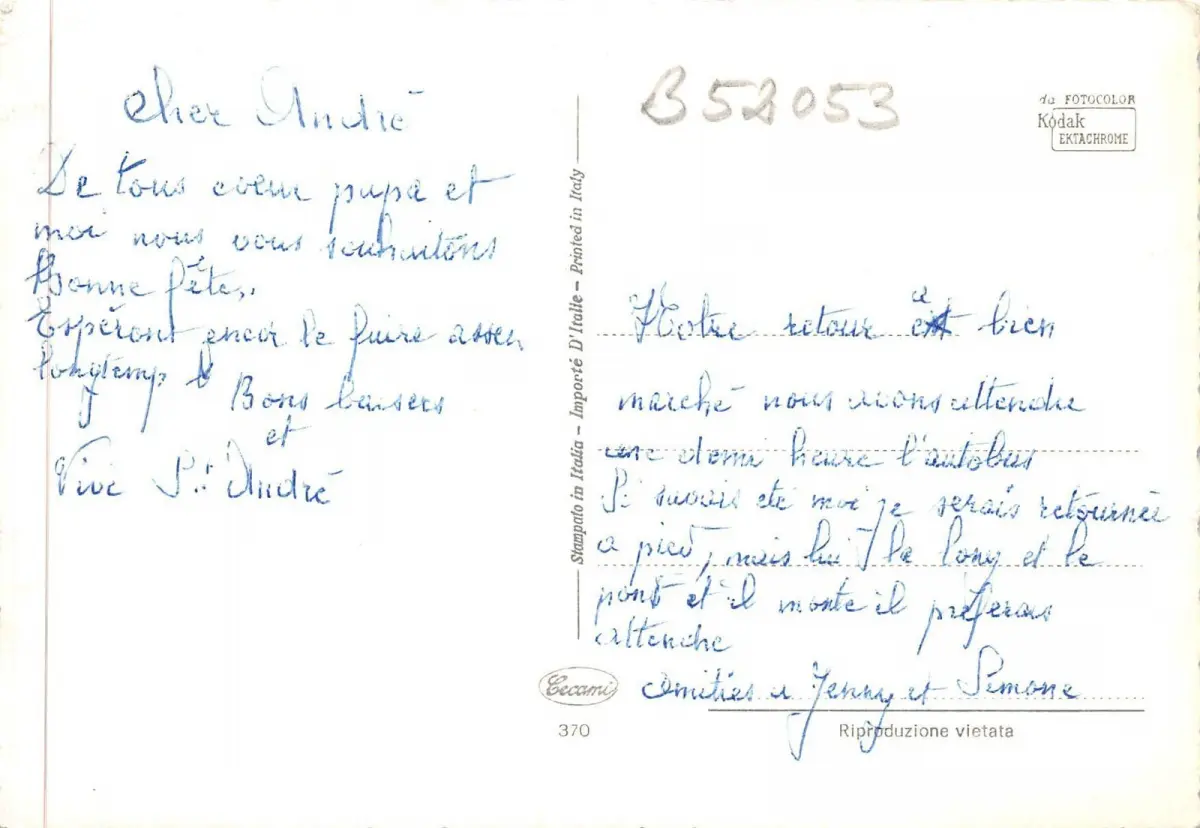 cher André
De tous coeur papa et
moi nous vous souhaitons
Bonne fêtes.
Espéront encor le faire assez
longtemp
Bons baisers
et
Vive St André
B52053
da FOTOCOLOR
Kodak
EKTACHROME
Stampato in Italia – Importé D'Italie – Printed in Italy
Notre retour bien
marché nous avons attendu
une demi heure l'autobus
Si savais eté moi je serais retournée
a pied, mais lui le long et le
pont et il monte il préferais
attendre
Amitiés a Jenny et Simone
Cecami
370
Riproduzione vietata